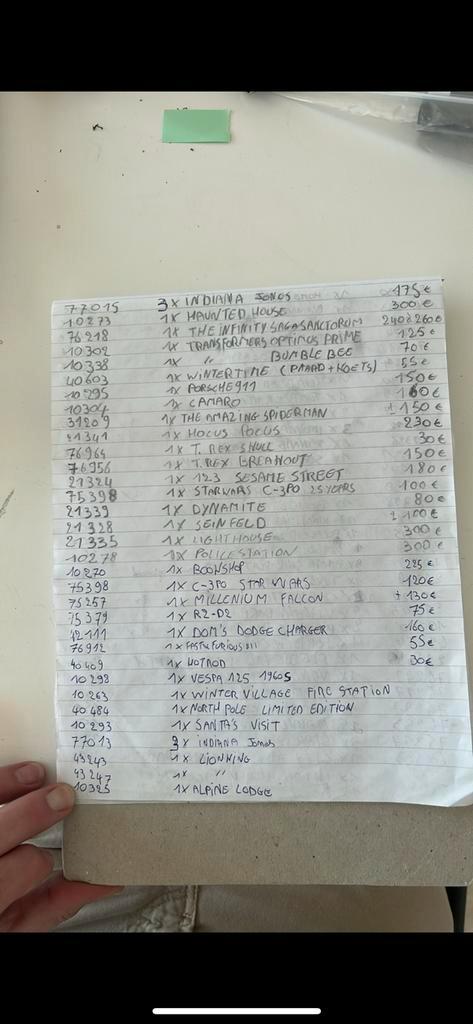 77015 3x INDIANA JONES 175€
10273 1x HAUNTED HOUSE 300€
76218 1x THE INFINITY SAGA SANCTORUM 240 à 260€
10302 1x TRANSFORMERS OPTIMUS PRIME 125€
10338 1x " BUMBLE BEE 70€
40603 1x WINTERTIME (PAARD+KOETS) 55€
10295 1x PORSCHE 911 150€
10304 1x CAMARO 160€
31209 1x THE AMAZING SPIDERMAN ± 150€
21341 1x HOCUS POCUS 230€
76964 1x T. REX SKULL 30€
76956 1x T. REX BREAKOUT 150€
21324 1x 123 SESAME STREET 180€
75398 1x STARWARS C-3PO 25 YEARS 100€
21339 1x DYNAMITE 80€
21328 1x SEINFELD ± 100€
21335 1x LIGHTHOUSE 300€
10278 1x POLICE STATION 300€
10270 1x BOOKSHOP 225€
75398 1x C-3PO STAR WARS 120€
75257 1x MILLENIUM FALCON ± 130€
75379 1x R2-D2 75€
42111 1x DOM'S DODGE CHARGER 160€
76912 1x FAST & FURIOUS !!! 55€
40409 1x HOTROD 30€
10298 1x VESPA 125 1960S
10263 1x WINTER VILLAGE FIRE STATION
40484 1x NORTH POLE LIMITED EDITION
10293 1x SANTA'S VISIT
77013 3x INDIANA JONES
43243 1x LION KING
43247 1x "
10325 1x ALPINE LODGE